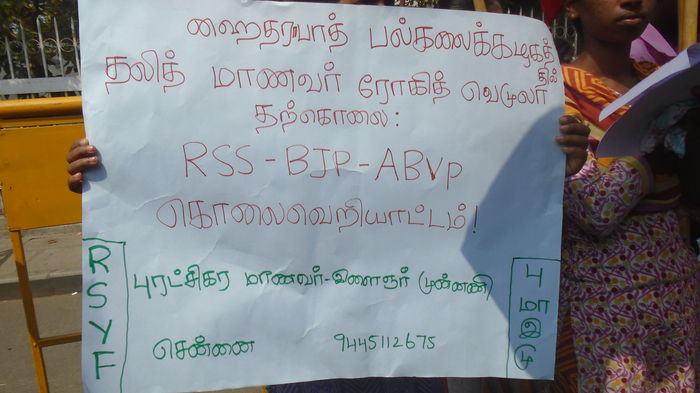 ஹைதராபாத் பல்கலைக்கழகத்தில்
தலித் மாணவர் ரோகித் வெமுலா
தற்கொலை:
RSS-BJP-ABVP
கொலைவெறியாட்டம்!
புரட்சிகர மாணவர்-இளைஞர் முன்னணி
சென்னை 9445112675
RSYF
பு மாஇமு